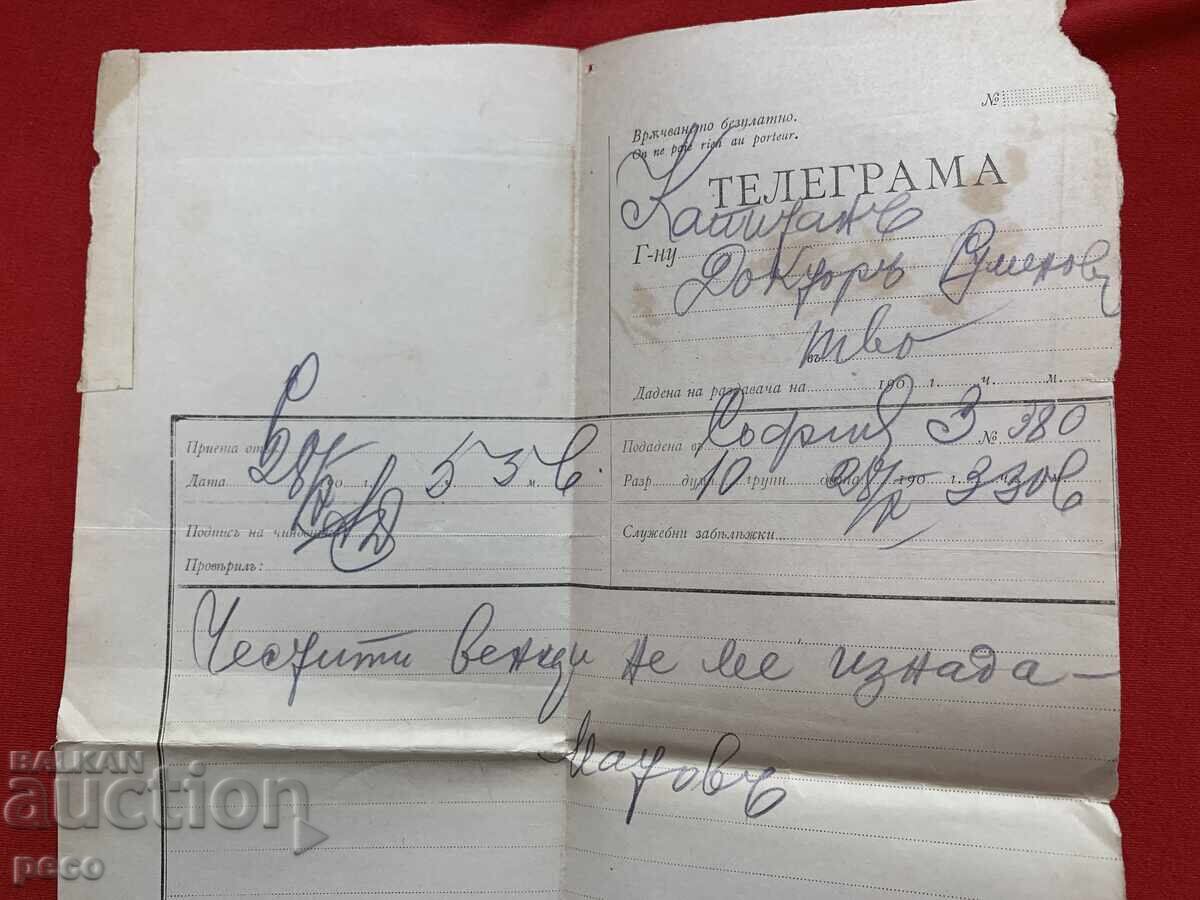 №
Врѫчването безплатно.
On ne paie rien au porteur.
ТЕЛЕГРАМА
Капитанъ
Г-ну Докторъ
въ тво
Дадена на раздавача на 190 г. ч. м.
Приета отъ С
Дата 28/ 190 г. 5 ч. 5 м. в.
Подпись на чиновника
Провѣрилъ:
Подадена въ София 3 № 380
Разр. думи 10 групи дата 28/ 190 г. 3 ч. 30 м. в
Служебни забѣлѣжки
Честити не ме изнада–
BALKAN
auction
peco